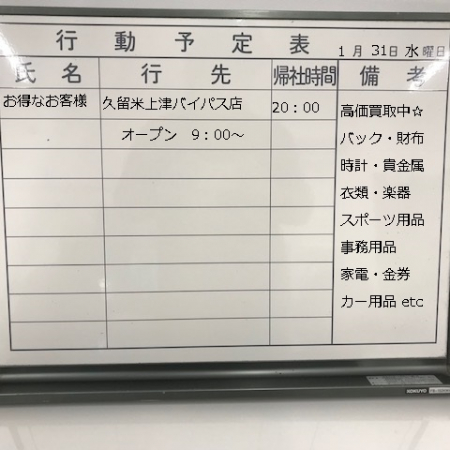 行動予定表 1月31日水曜日
氏名 行先 帰社時間 備考
お得なお客様 久留米上津バイパス店 20:00 高価買取中☆
オープン 9:00～ バック・財布
時計・貴金属
衣類・楽器
スポーツ用品
事務用品
家電・金券
カー用品 etc
KOKUYO